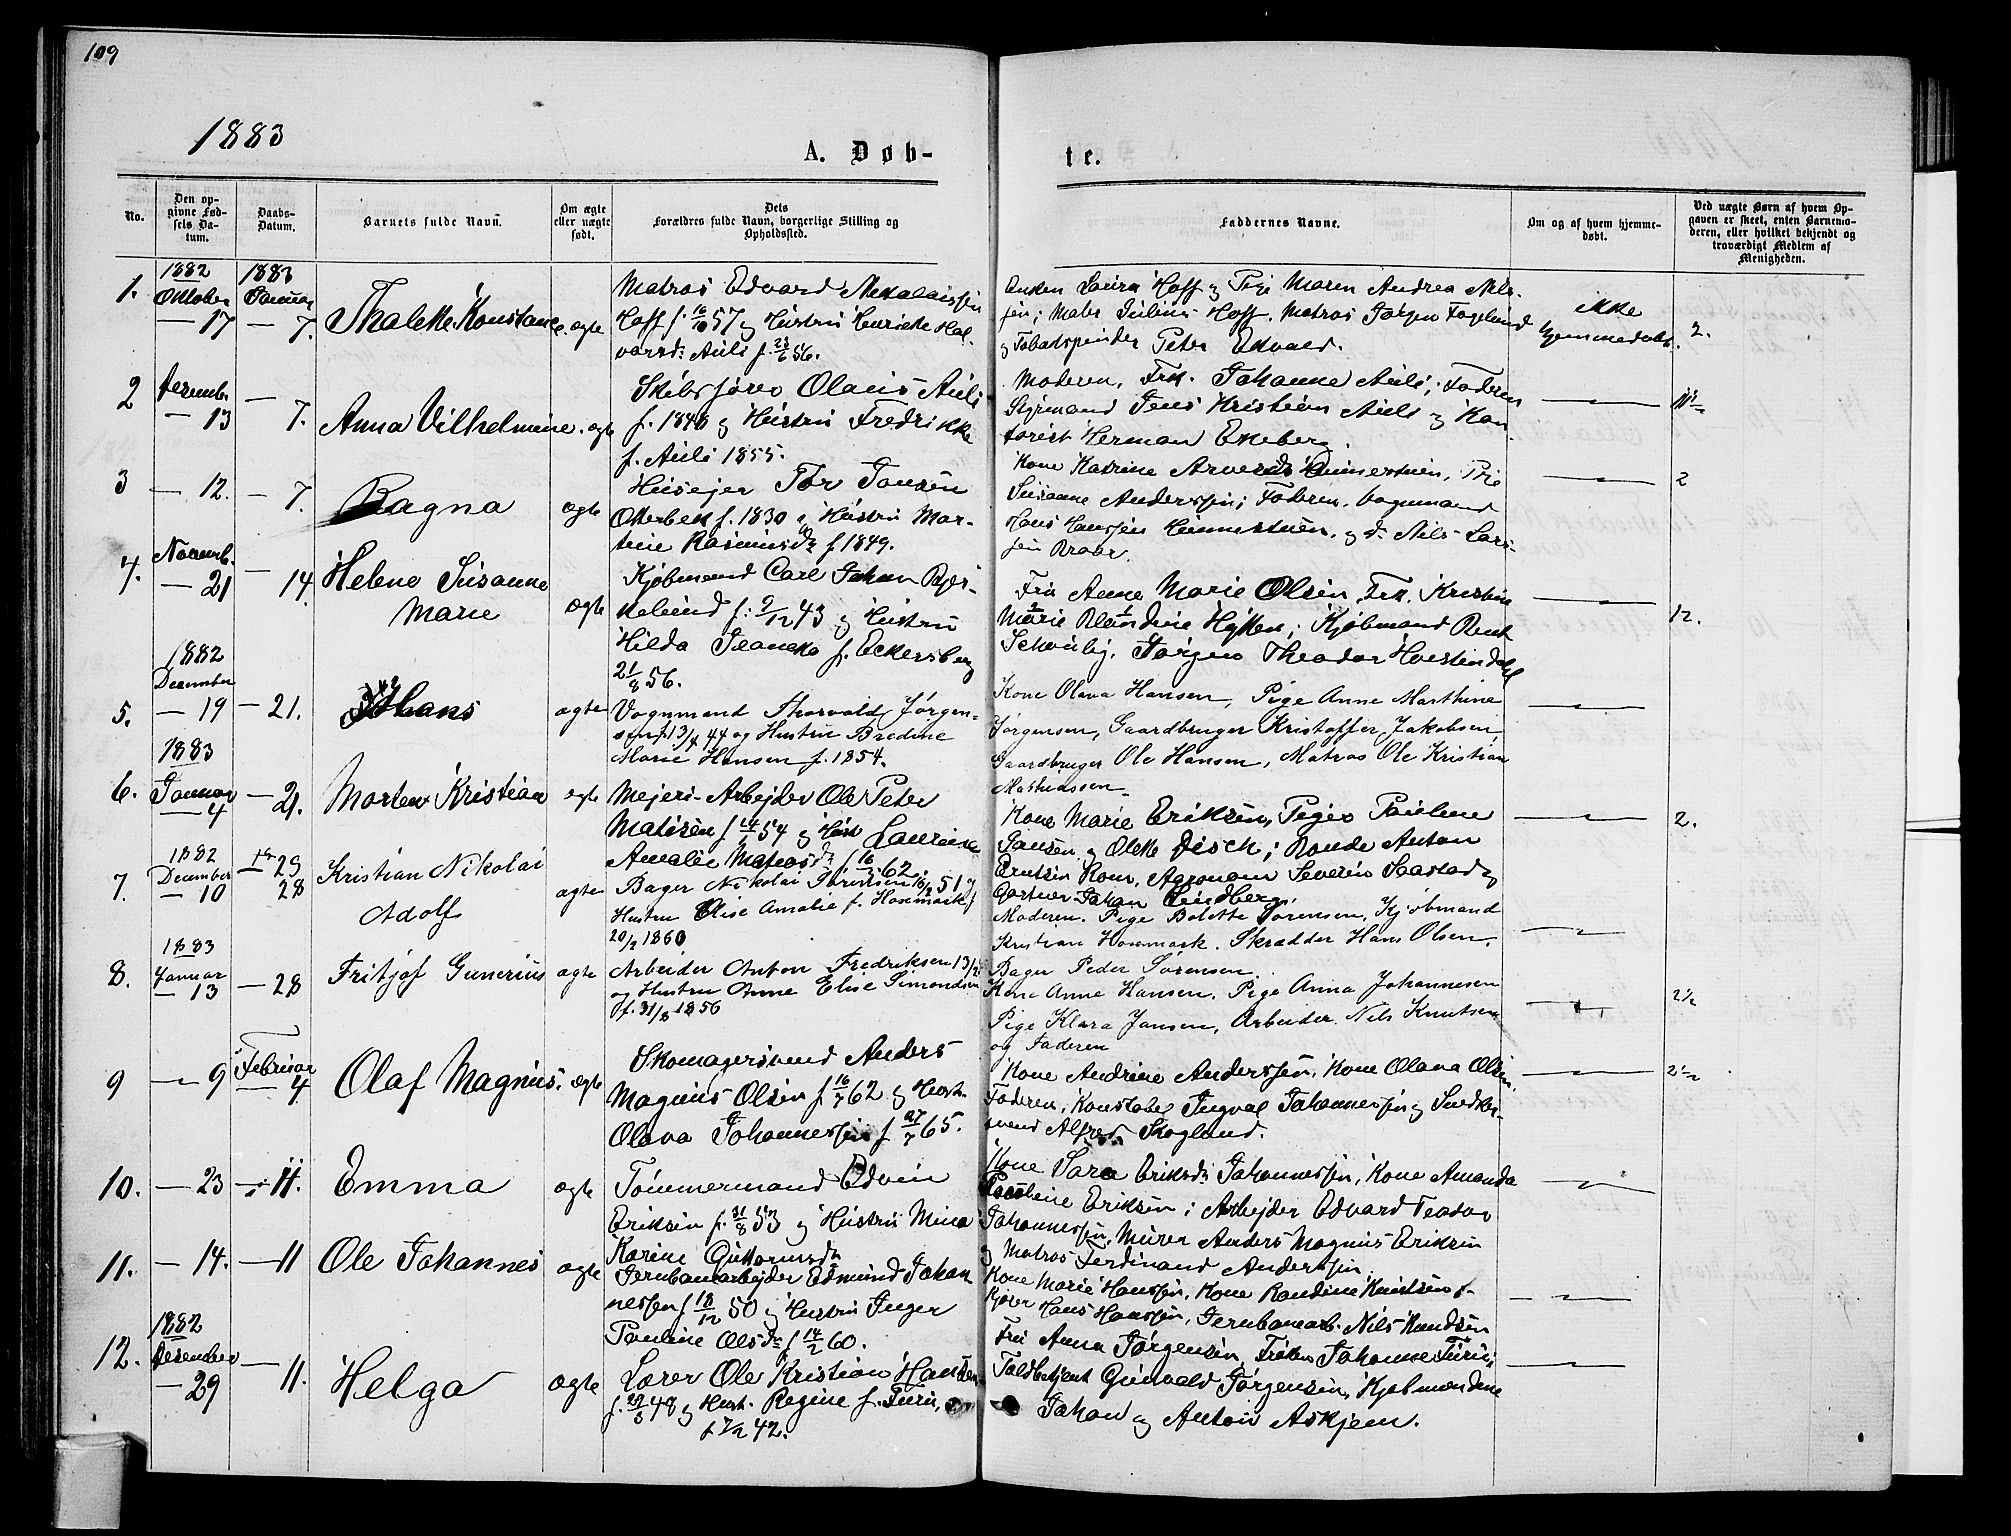 109
1883
A. Døb-
te.
No.
Den op-
givne Fød-
sels Da-
tum.
Daabs-
Datum.
Barnets fulde Navn.
Om ægte
eller uægte
født.
Dets
Forældres fulde Navn, borgerlige Stilling og
Opholdssted.
Faddernes Navne.
Om og af hvem hjemme-
døbt.
Ved uægte Børn af hvem Op-
gaven er skeet, enten Barnemo-
deren, eller hvilket bekjendt og
troværdigt Medlem af
Menigheden.
1.
1882
Oktober
— 17
1883
Januar
— 7.
Thalette Konstance.
ægte
Matros Edvard Nekolaissen
Hoff f. 16/10 57 og Hustru Henrikke Hal-
vorsd: Auli f. 23/6 56.
Enken Laura Hoff og Pige Maren Andrea Nils-
sen; Matr. Julius Hoff, Matros Jørgen Fogelund
og Tobakspinder Peter Edvald.
ikke
hjemmedøbt.
2.
2
Desemb.
— 13
— 7.
Anna Vilhelmine.
ægte
Skibsfører Olaus Auli
f. 1848 og Hustru Fredrikke
f. Auli 1855.
Moderen, Frk. Johanne Auli; Faderen
Styrmand Jens Kristian Auli og Kon-
torist Herman Ekeberg.
3
— 12.
— 7.
Ragna
ægte
Huseier Tor Jansen
Otterbek f. 1830 og Hustru Mar-
tine Rasmusdr f. 1849.
Kone Katrine Arvesdr Himestuen, Pige
Susanne Anderssen; Faderen, Vognmand
Hans Hanssen Himmestuen, og d. Nils Lars-
sen Braar.
2
4.
Novemb.
— 21
— 14.
Helene Susanne
Marie
ægte
Kjøbmand Carl Johan Bjør-
kelund f: 9/12 43 og Hustru
Hilda Franeka f. Eckersberg
21/8 56.
Fru Anne Marie Olsen, Frk. Kristine
Marie Blandine Hytten; Kjøbmand Bent
Schoulig, Jørgen Theodor Hvestendahl
12.
5.
1882
December
— 19
— 21.
Hans
ægte
Vognmand Thorvald Jørgen-
sen f. 13/4 44 og Hustru Bredine
Marie Hansen f. 1854.
Kone Olava Hansen, Pige Anne Marthine
Jørgensen, Gaardbruger Kristoffer Jakobsen,
Gaardbruger Ole Hansen, Matros Ole Kristian
Mathiassen
6.
1883
Januar
— 4
— 21.
Morten Kristian
ægte
Mejeri-Arbejder Ole Peter
Matisen f. 14/7 54 og Hust. Laurine
Amalie Matiasdr f. 16/3 62.
Kone Marie Eriksen, Piger Pauline
Jansen og Olette Disch; Bonde Anton
Eriksen Rom, Agronom Severin Saastad og
Gartner Johan Lindberg.
2.
7.
1882
December
— 10
28
Kristian Nikolai
Adolf
ægte
Bager Nikolai Sørensen 16/2 51 og
Hustru Elise Amalie f. Horsmark f
20/2 1860
Moderen. Pige Bolette Sørensen, Kjøbmand
Kristian Horsmark. Skrædder Hans Olsen,
Bager Peder Sørensen.
8.
1883
Januar
— 13
— 28
Fritjof Gunerius
ægte
Arbeider Anton Fredriksen
og Hustru Anne Elise Simonsen
f. 31/8 1856
Kone Anne Hansen. Pige Anna Johannesen
Pige Klara Jansen, Arbeider. Nils Knutsen
og Faderen
2 1/2
9
— 9
Februar
— 4
Olaf Magnus.
ægte
Skomagersvend Anders
Magnus Olsen f 16/7 62 og Hustr.
Olava Johannessen f 27/7 65.
Kone Andrine Anderssen, Kone Olava Olsen,
Faderen, Konstabel Ingval Johannessen og Snedker-
svend Alfred Skogland.
2 1/2
10.
— 23
— 11.
Emma
ægte
Tømmermand Edvin
Eriksen f. 31/8 53 og Hustru Mina
Karine Guttormsdr
Kone Sara Eriksdr Johannessen, Kone Amanda
Pauline Eriksen; Arbejder Edvard Teodor
Johannessen, Murer Anders Magnus Eriksen
og Matros Ferdinand Anderssen.
11.
— 14.
— 11
Ole Johannes
ægte
Jernbanearbejder Edmund Johan-
nessen f 18/12 50 og Hustru Inger
Pauline Olsdr f 14/2 60.
Kone Marie Hanssen, Kone Randine Knutsen;
Kjører Hans Hanssen, Jernbanearb. Nils Knudsen
12.
1882
Desember
— 29
— 11.
Helga
ægte
Lærer Ole Kristian Hansen
48 og Hust. Regine f. Furu,
42.
Fru Anna Jørgensen, Frøken Johanne Furu;
Toldbetjent Grünvald Jørgensen, Kjøbmændene
Johan og Anton Askjem.